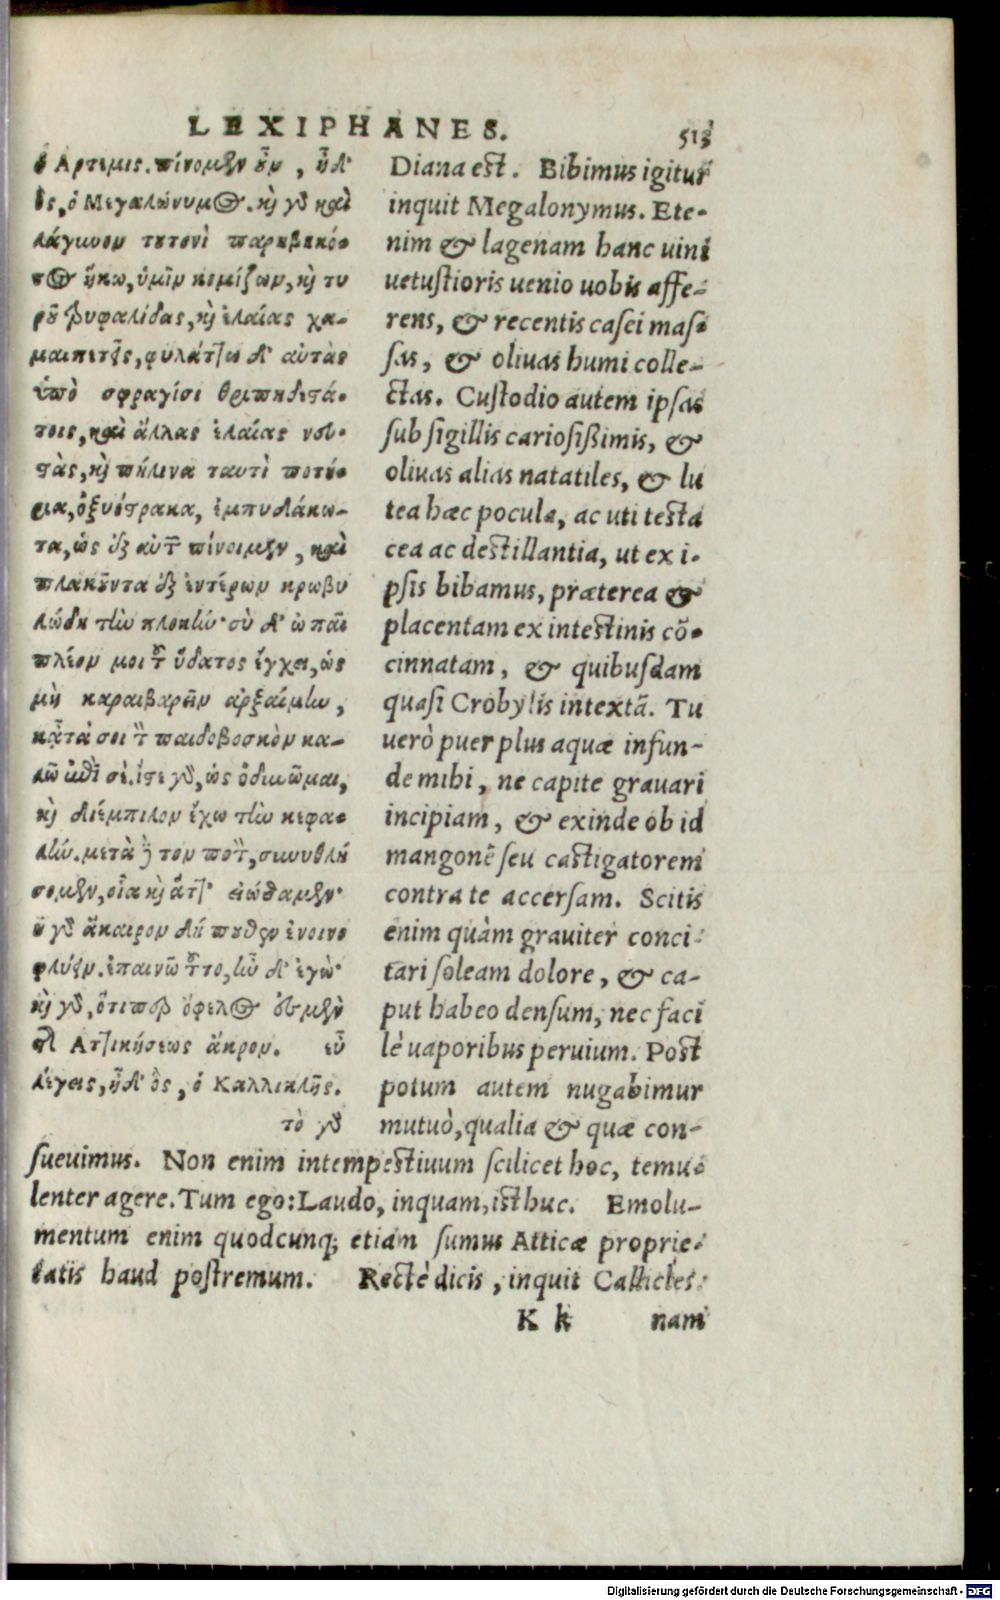 LEXIPHANES. 513
ὁ Αρτεμις. πίνομεν οὖν, ἦ δ'
ὃς, ὁ Μεγαλώνυμος. καὶ γὰρ καὶ
λάγυνον τουτονὶ παρηβηκό-
τος ἥκω, ὑμῖν κομίζων, καὶ τυ
ροῦ τρυφαλίδας, καὶ ἐλαίας χα-
μαιπετεῖς, φυλάττω δ' αὐτὰς
ὑπὸ σφραγίσι θριπηδεστά-
τοις, καὶ ἄλλας ἐλαίας νευ-
στὰς, καὶ πήλινα ταυτὶ ποτή-
ρια, ὀξυόστρακα, ἐμπυδάκω-
τα, ὡς ἐξ αὐτῶν πίνοιμεν, καὶ
πλακοῦντα ἐξ ἐντέρων κρωβυ
λώδη τὴν πλοκήν· σὺ δ' ὦ παῖ
πλέον μοι τοῦ ὕδατος ἔγχει, ὡς
μὴ καραιβαρεῖν ἀρξαίμην,
κᾆτά σοι τὸν παιδοβοσκὸν κα-
λῶ ἐπὶ σὲ. ἴστε γὰρ, ὡς ὀδυνῶμαι,
καὶ διέμπιλον ἔχω τὴν κεφα-
λήν. μετὰ δὲ τὸν πότον, συνυθλή
σομεν, οἷα καὶ ἄττ' εἰώθαμεν·
οὐ γὰρ ἄκαιρον δή που θεν ἐνοινο
φλύειν. ἐπαινῶ τοῦτο, ἦν δ' ἐγώ·
καὶ γὰρ, ὅτιπερ ὄφελος ἐσμὲν
τῆς Αττικήσεως ἄκρον. εὖ
λέγεις, ἦ δ' ὃς, ὁ Καλλικλῆς.
τὸ γὰρ
Diana est. Bibimus igitur
inquit Megalonymus. Ete-
nim & lagenam hanc uini
uetustioris uenio uobis affe-
rens, & recentis casei mas-
sas, & oliuas humi colle-
ctas. Custodio autem ipsas
sub sigillis cariosißimis, &
oliuas alias natatiles, & lu
tea hæc pocula, ac uti testa
cea ac destillantia, ut ex i-
psis bibamus, præterea &
placentam ex intestinis cõ-
cinnatam, & quibusdam
quasi Crobylis intextã. Tu
uerò puer plus aquæ infun-
de mihi, ne capite grauari
incipiam, & exinde ob id
mangonẽ seu castigatorem
contra te accersam. Scitis
enim quàm grauiter conci-
tari soleam dolore, & ca-
put habeo densum, nec faci
lè uaporibus peruium. Post
potum autem nugabimur
mutuò, qualia & quæ con-
sueuimus. Non enim intempestiuum scilicet hoc, temu-
lenter agere. Tum ego: Laudo, inquam, isthuc. Emolu-
mentum enim quodcunq; etiam sumus Atticæ proprie-
tatis haud postremum. Rectè dicis, inquit Callicles:
K k nam
Digitalisierung gefördert durch die Deutsche Forschungsgemeinschaft - DFG